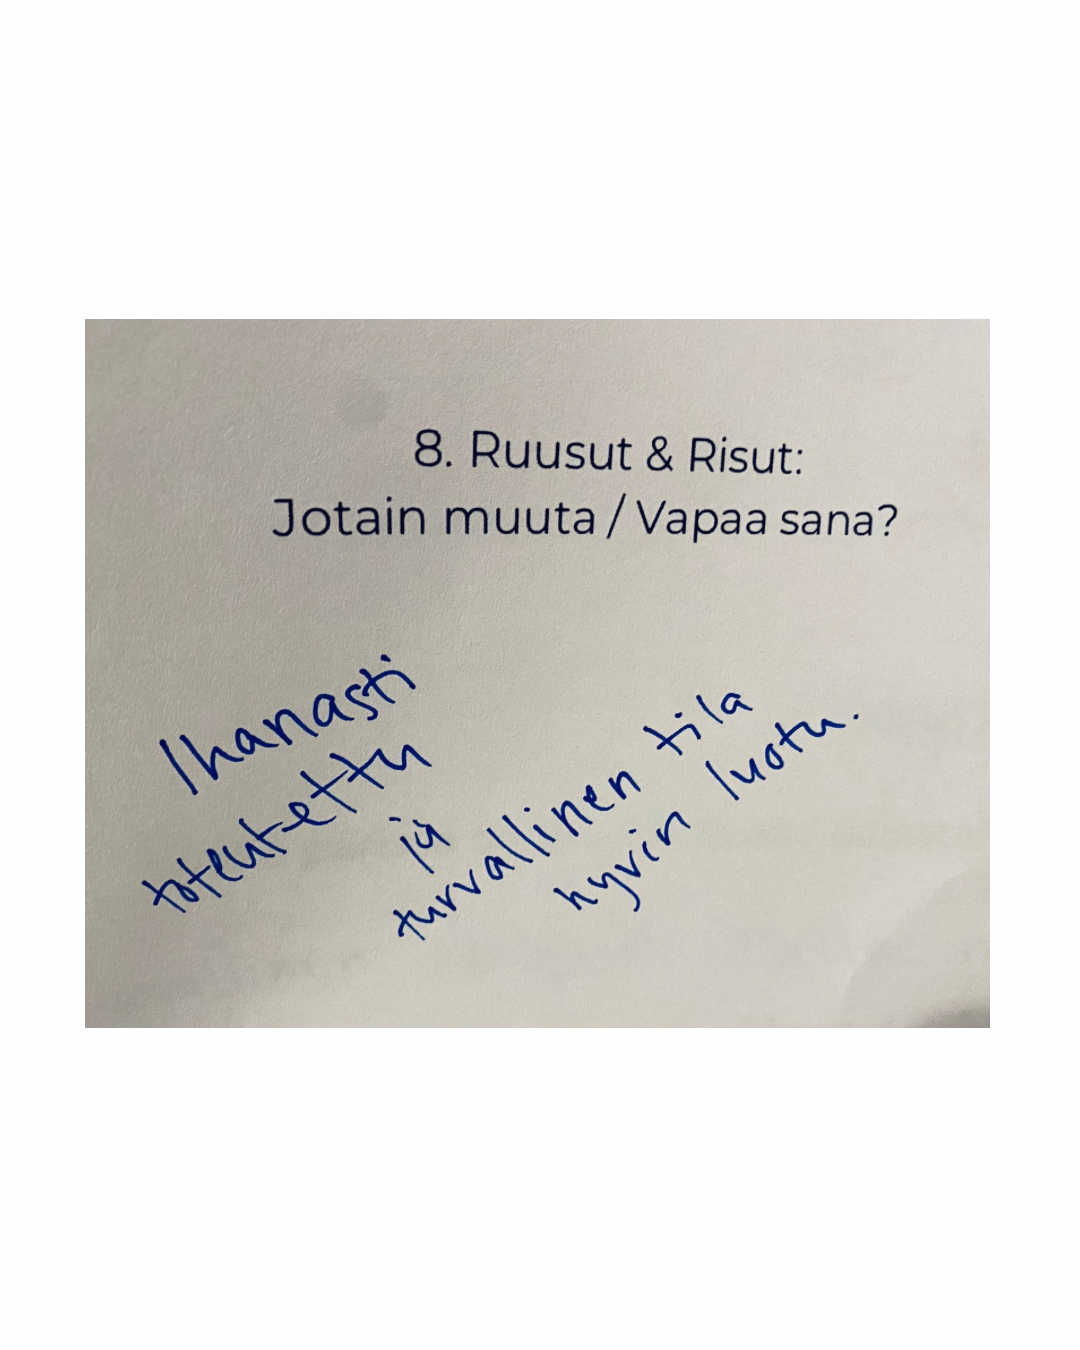 8. Ruusut & Risut:
Jotain muuta / Vapaa sana?
Ihanasti
toteutettu
ja
turvallinen tila
hyvin luotu.